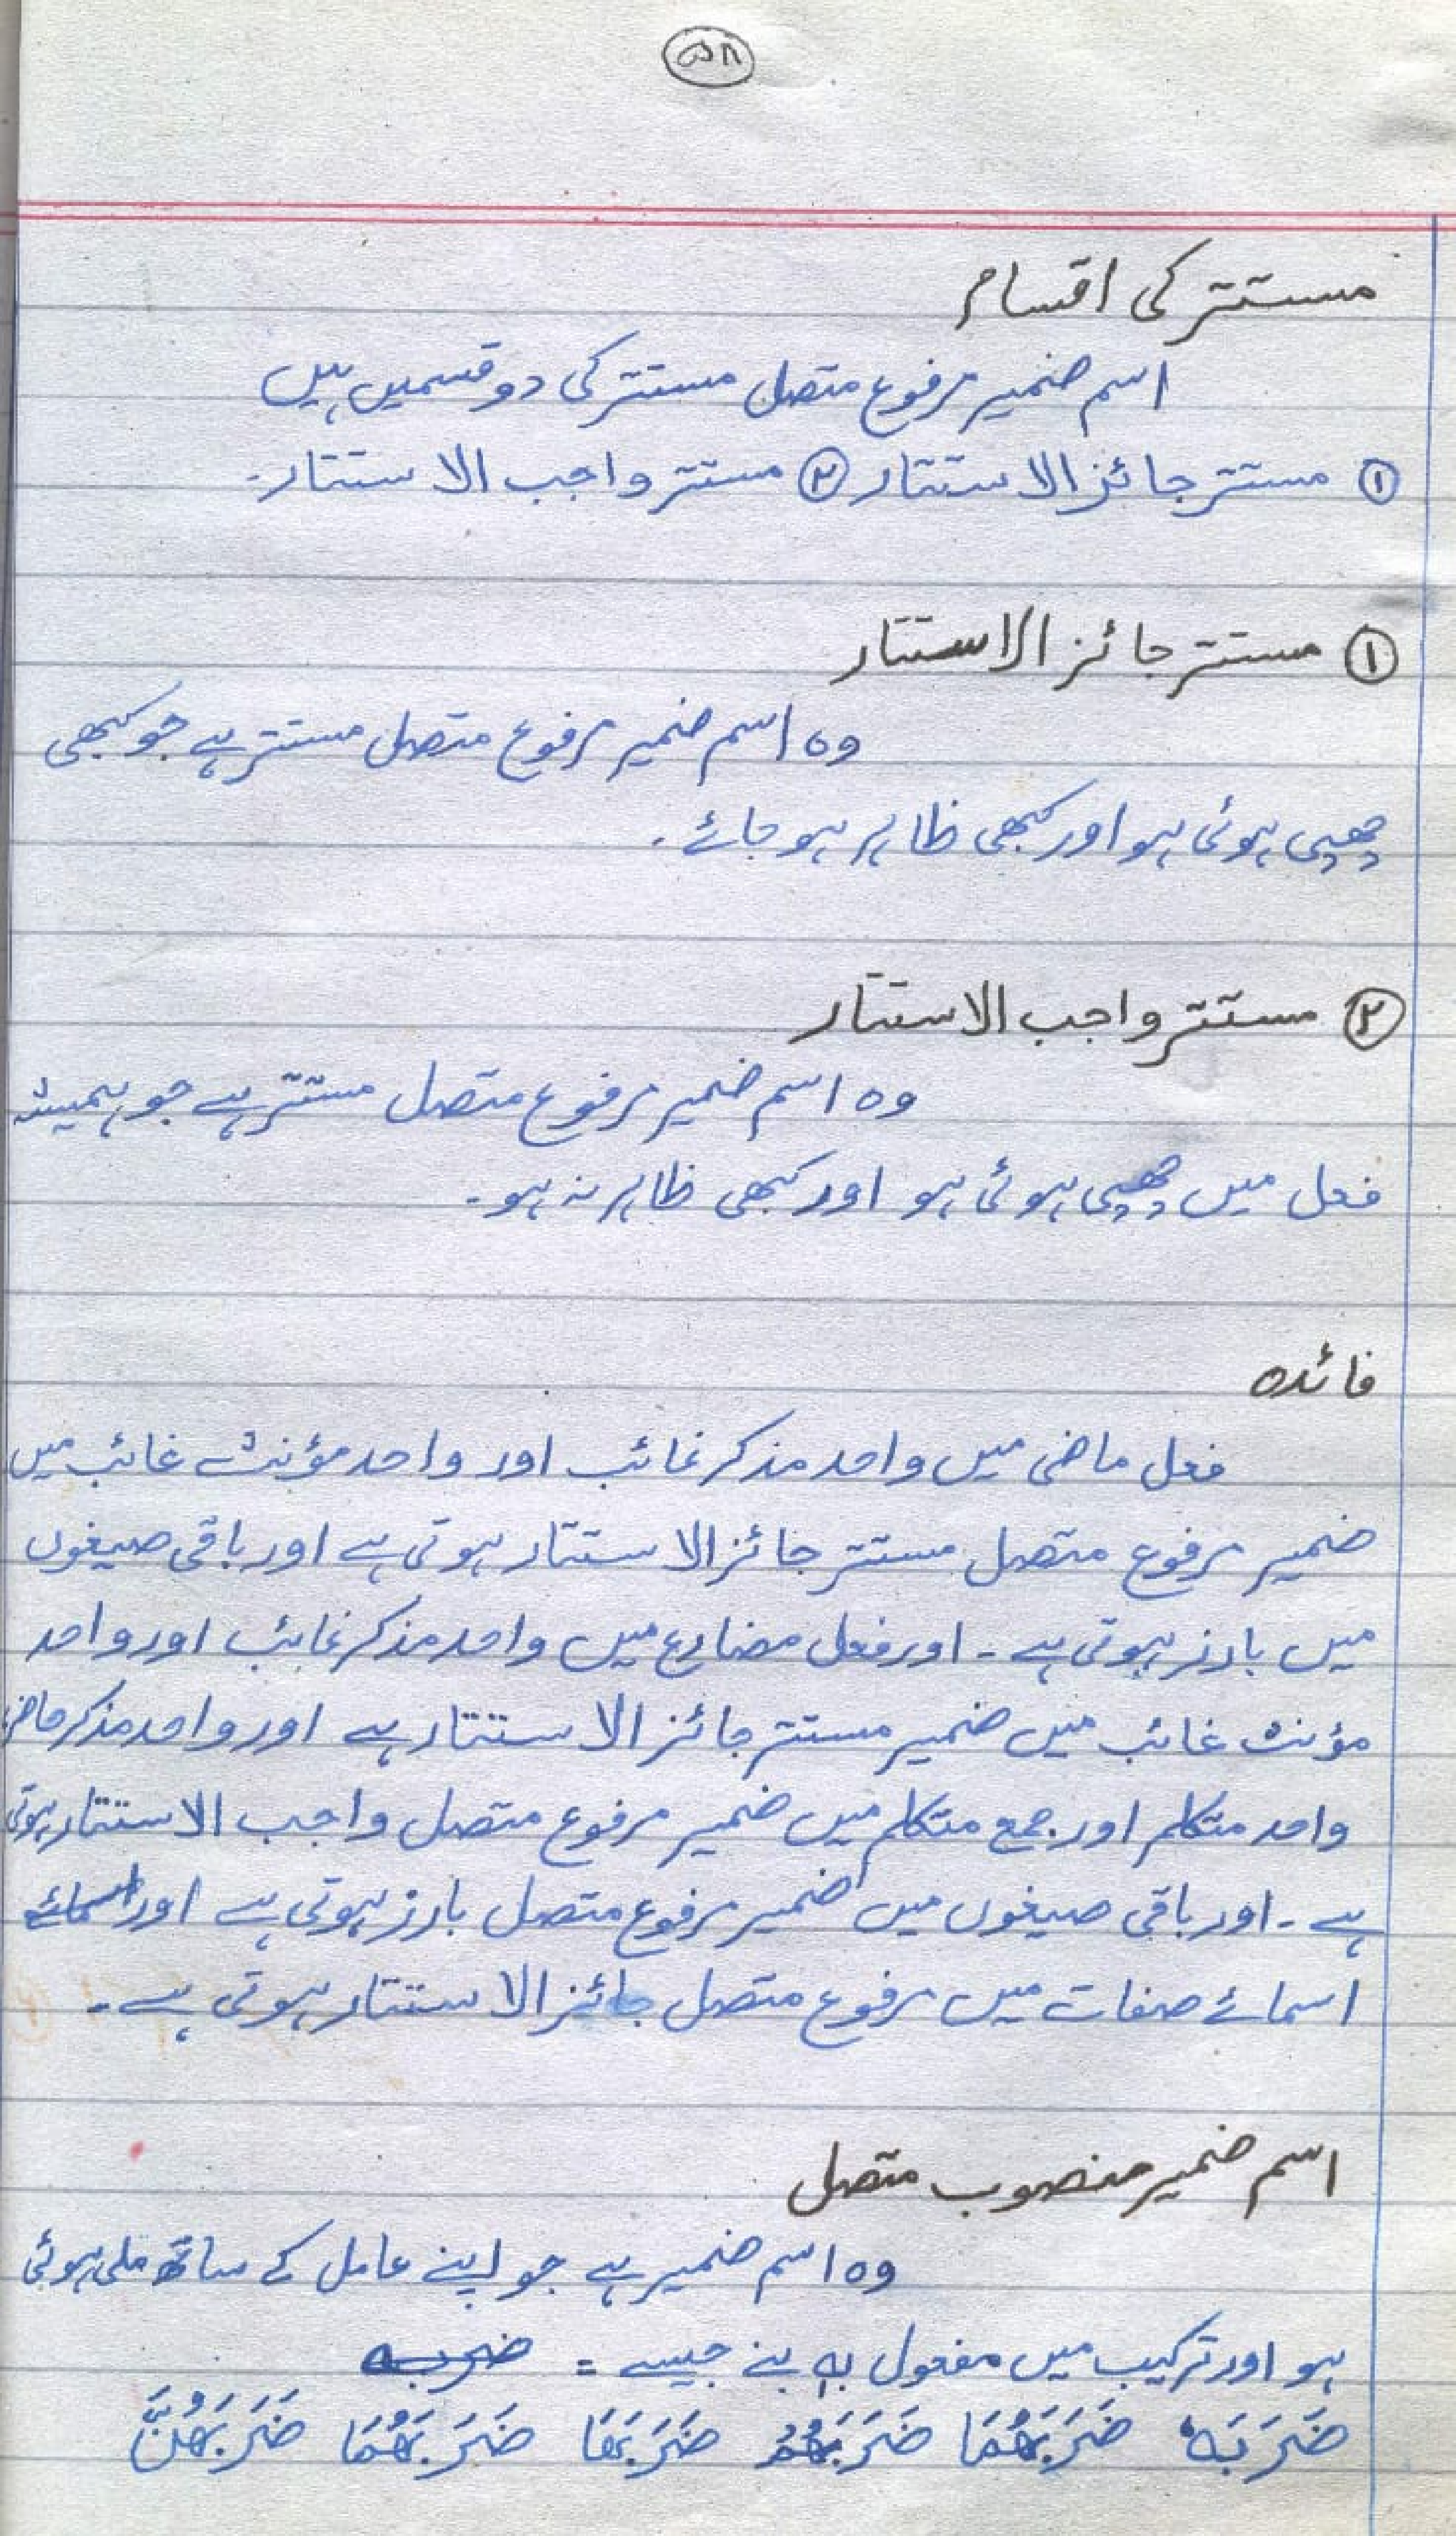 ۵۸
مستتر کی اقسام
اسم ضمیر مرفوع متصل مستتر کی دو قسمیں ہیں
① مستتر جائز الاستتار ② مستتر واجب الاستتار۔
① مستتر جائز الاستتار
وہ اسم ضمیر مرفوع متصل مستتر ہے جو کبھی
چھپی ہوئی ہو اور کبھی ظاہر ہو جائے۔
② مستتر واجب الاستتار
وہ اسم ضمیر مرفوع متصل مستتر ہے جو ہمیشہ
فعل میں چھپی ہوئی ہو اور کبھی ظاہر نہ ہو۔
فائدہ
فعل ماضی میں واحد مذکر غائب اور واحد مؤنث غائب میں
ضمیر مرفوع متصل مستتر جائز الاستتار ہوتی ہے اور باقی صیغوں
میں بارز ہوتی ہے۔ اور فعل مضارع میں واحد مذکر غائب اور واحد
مؤنث غائب میں ضمیر مستتر جائز الاستتار ہے اور واحد مذکر حاضر
واحد متکلم اور جمع متکلم میں ضمیر مرفوع متصل واجب الاستتار ہوتی
ہے۔ اور باقی صیغوں میں ضمیر مرفوع متصل بارز ہوتی ہے اور اسمائے
اسمائے صفات میں مرفوع متصل جائز الاستتار ہوتی ہے۔
اسم ضمیر منصوب متصل
وہ اسم ضمیر ہے جو اپنے عامل کے ساتھ ملی ہوئی
ہو اور ترکیب میں مفعول بہ بنے جیسے = ضربہ
ضَرَبَهُ ضَرَبَهُمَا ضَرَبَهُمْ ضَرَبَهَا ضَرَبَهُمَا ضَرَبَهُنَّ